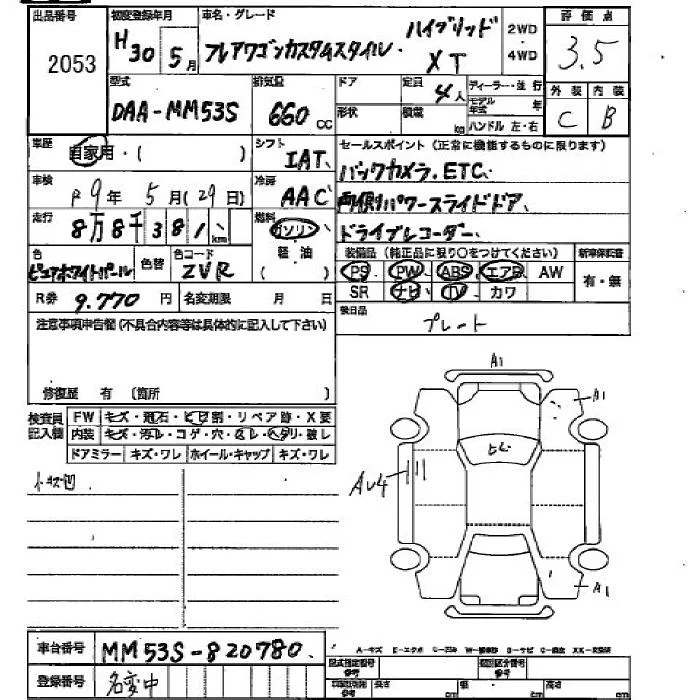 出品番号 初度登録年月 車名・グレード 評価点
2053 H30 5月 フレアワゴンカスタムスタイル・ハイブリッド XT 2WD・4WD 3.5
型式 排気量 ドア 定員 ディーラー・並行 外装 内装
DAA-MM53S 660cc 形状 4人 積載 kg モデル年式 年 ハンドル 左・右 C B
車歴 自家用・( ) シフト IAT セールスポイント (正常に機能するものに限ります)
車検 R9年5月(29日) 冷房 AAC バックカメラ、ETC、
走行 8万8千381km 燃料 ガソリン 両側パワースライドドア、
軽・油 ( ) ドライブレコーダー、
色 ピュアホワイトパール 色替 色コード ZVR 装備品 (純正品に限り○をつけてください) 新車保証書
PS PW ABS エアB AW 有・無
R券 9.770円 名変期限 月 日 SR ナビ TV カワ
注意事項申告欄(不具合内容等は具体的に記入して下さい) 後日品
プレート
修復歴 有 (箇所 )
検査員記入欄 FW キズ・飛石・ヒビ割・リペア跡・X要
内装 キズ・汚レ・コゲ・穴・スレ・ヘタリ・破レ
ドアミラー キズ・ワレ ホイール・キャップ キズ・ワレ
A1
A1
A1
車台番号 MM53S-820780.
登録番号 名変中
型式指定番号 参考 類別区分番号 参考
長さ cm 幅 cm 高さ cm